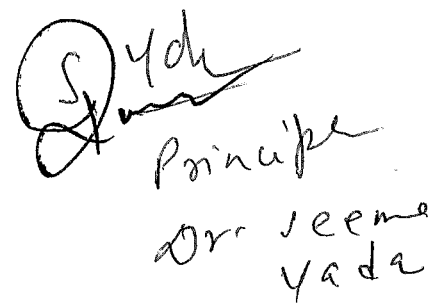 Principa
Dr. Seema
Yada